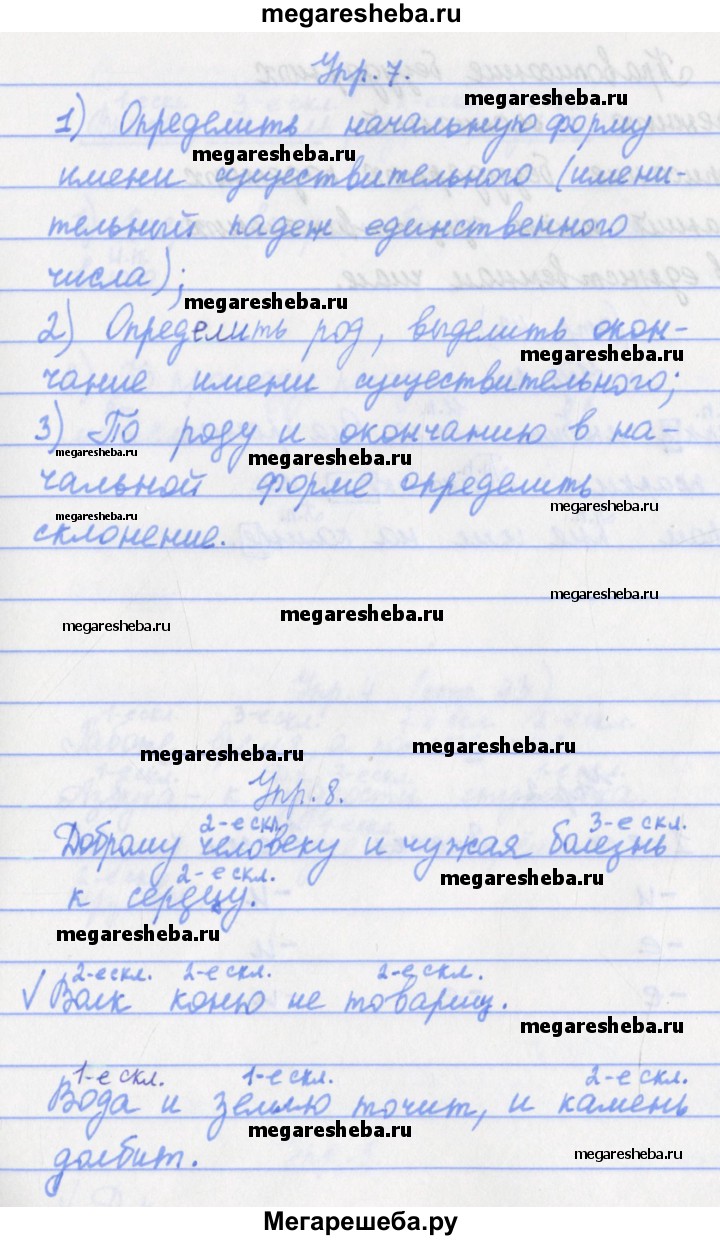 megaresheba.ru
Упр. 7.
megaresheba.ru
1) Определить начальную форму
megaresheba.ru
имени существительного (имени-
тельный падеж единственного
числа);
megaresheba.ru
2) Определить род, выделить окон-
megaresheba.ru
чание имени существительного;
3) По роду и окончанию в на-
megaresheba.ru megaresheba.ru
чальной форме определить
megaresheba.ru megaresheba.ru
склонение.
megaresheba.ru megaresheba.ru megaresheba.ru
megaresheba.ru megaresheba.ru
Упр. 8.
2-е скл. 3-е скл.
Доброму человеку и чужая болезнь
2-е скл. megaresheba.ru
к сердцу.
megaresheba.ru
2-е скл. 2-е скл. 2-е скл.
√ Волк коню не товарищ.
megaresheba.ru
1-е скл. 1-е скл. 2-е скл.
Вода и землю точит, и камень
megaresheba.ru
долбит.
megaresheba.ru
Мегарешеба.ру